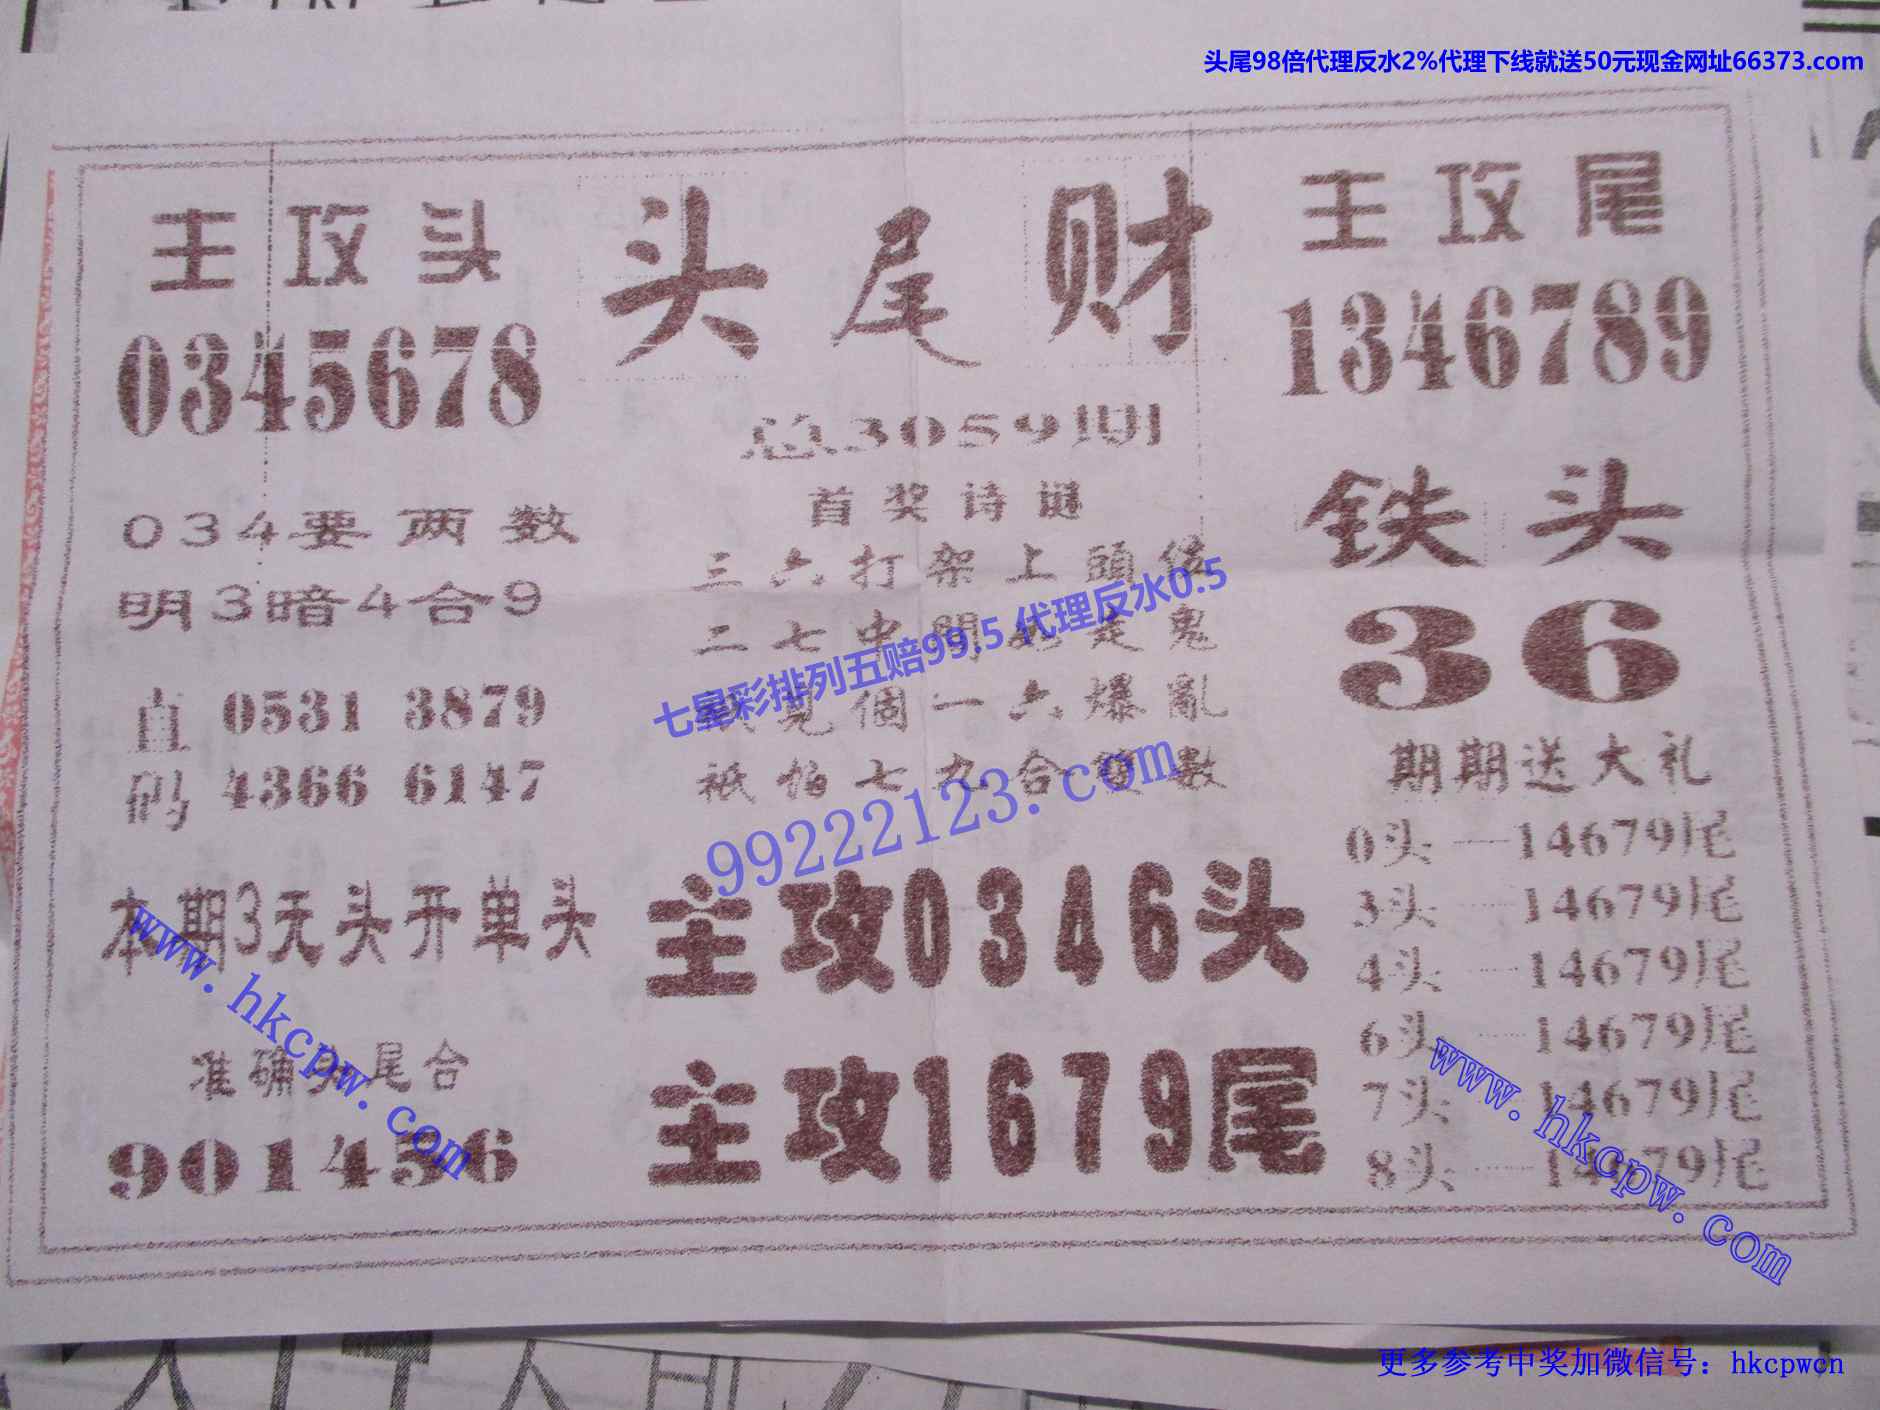 头尾98倍代理反水2%代理下线就送50元现金网址66373.com
主攻头
0345678
头尾财
主攻尾
1346789
总3059期
首奖诗谜
三六打架上頭
二七中間走鬼
見個一六爆亂
祇怕七九合數
034要两数
明3暗4合9
直码
0531 3879
4366 6147
铁头
36
期期送大礼
0头一14679尾
3头一14679尾
4头一14679尾
6头一14679尾
7头一14679尾
8头一14679尾
本期3天头开单头
准确头尾合
901456
主攻0346头
主攻1679尾
七星彩排列五赔99.5 代理反水0.5
99222123.com
www.hkcpw.com
www.hkcpw.com
更多参考中奖加微信号：hkcpwcn